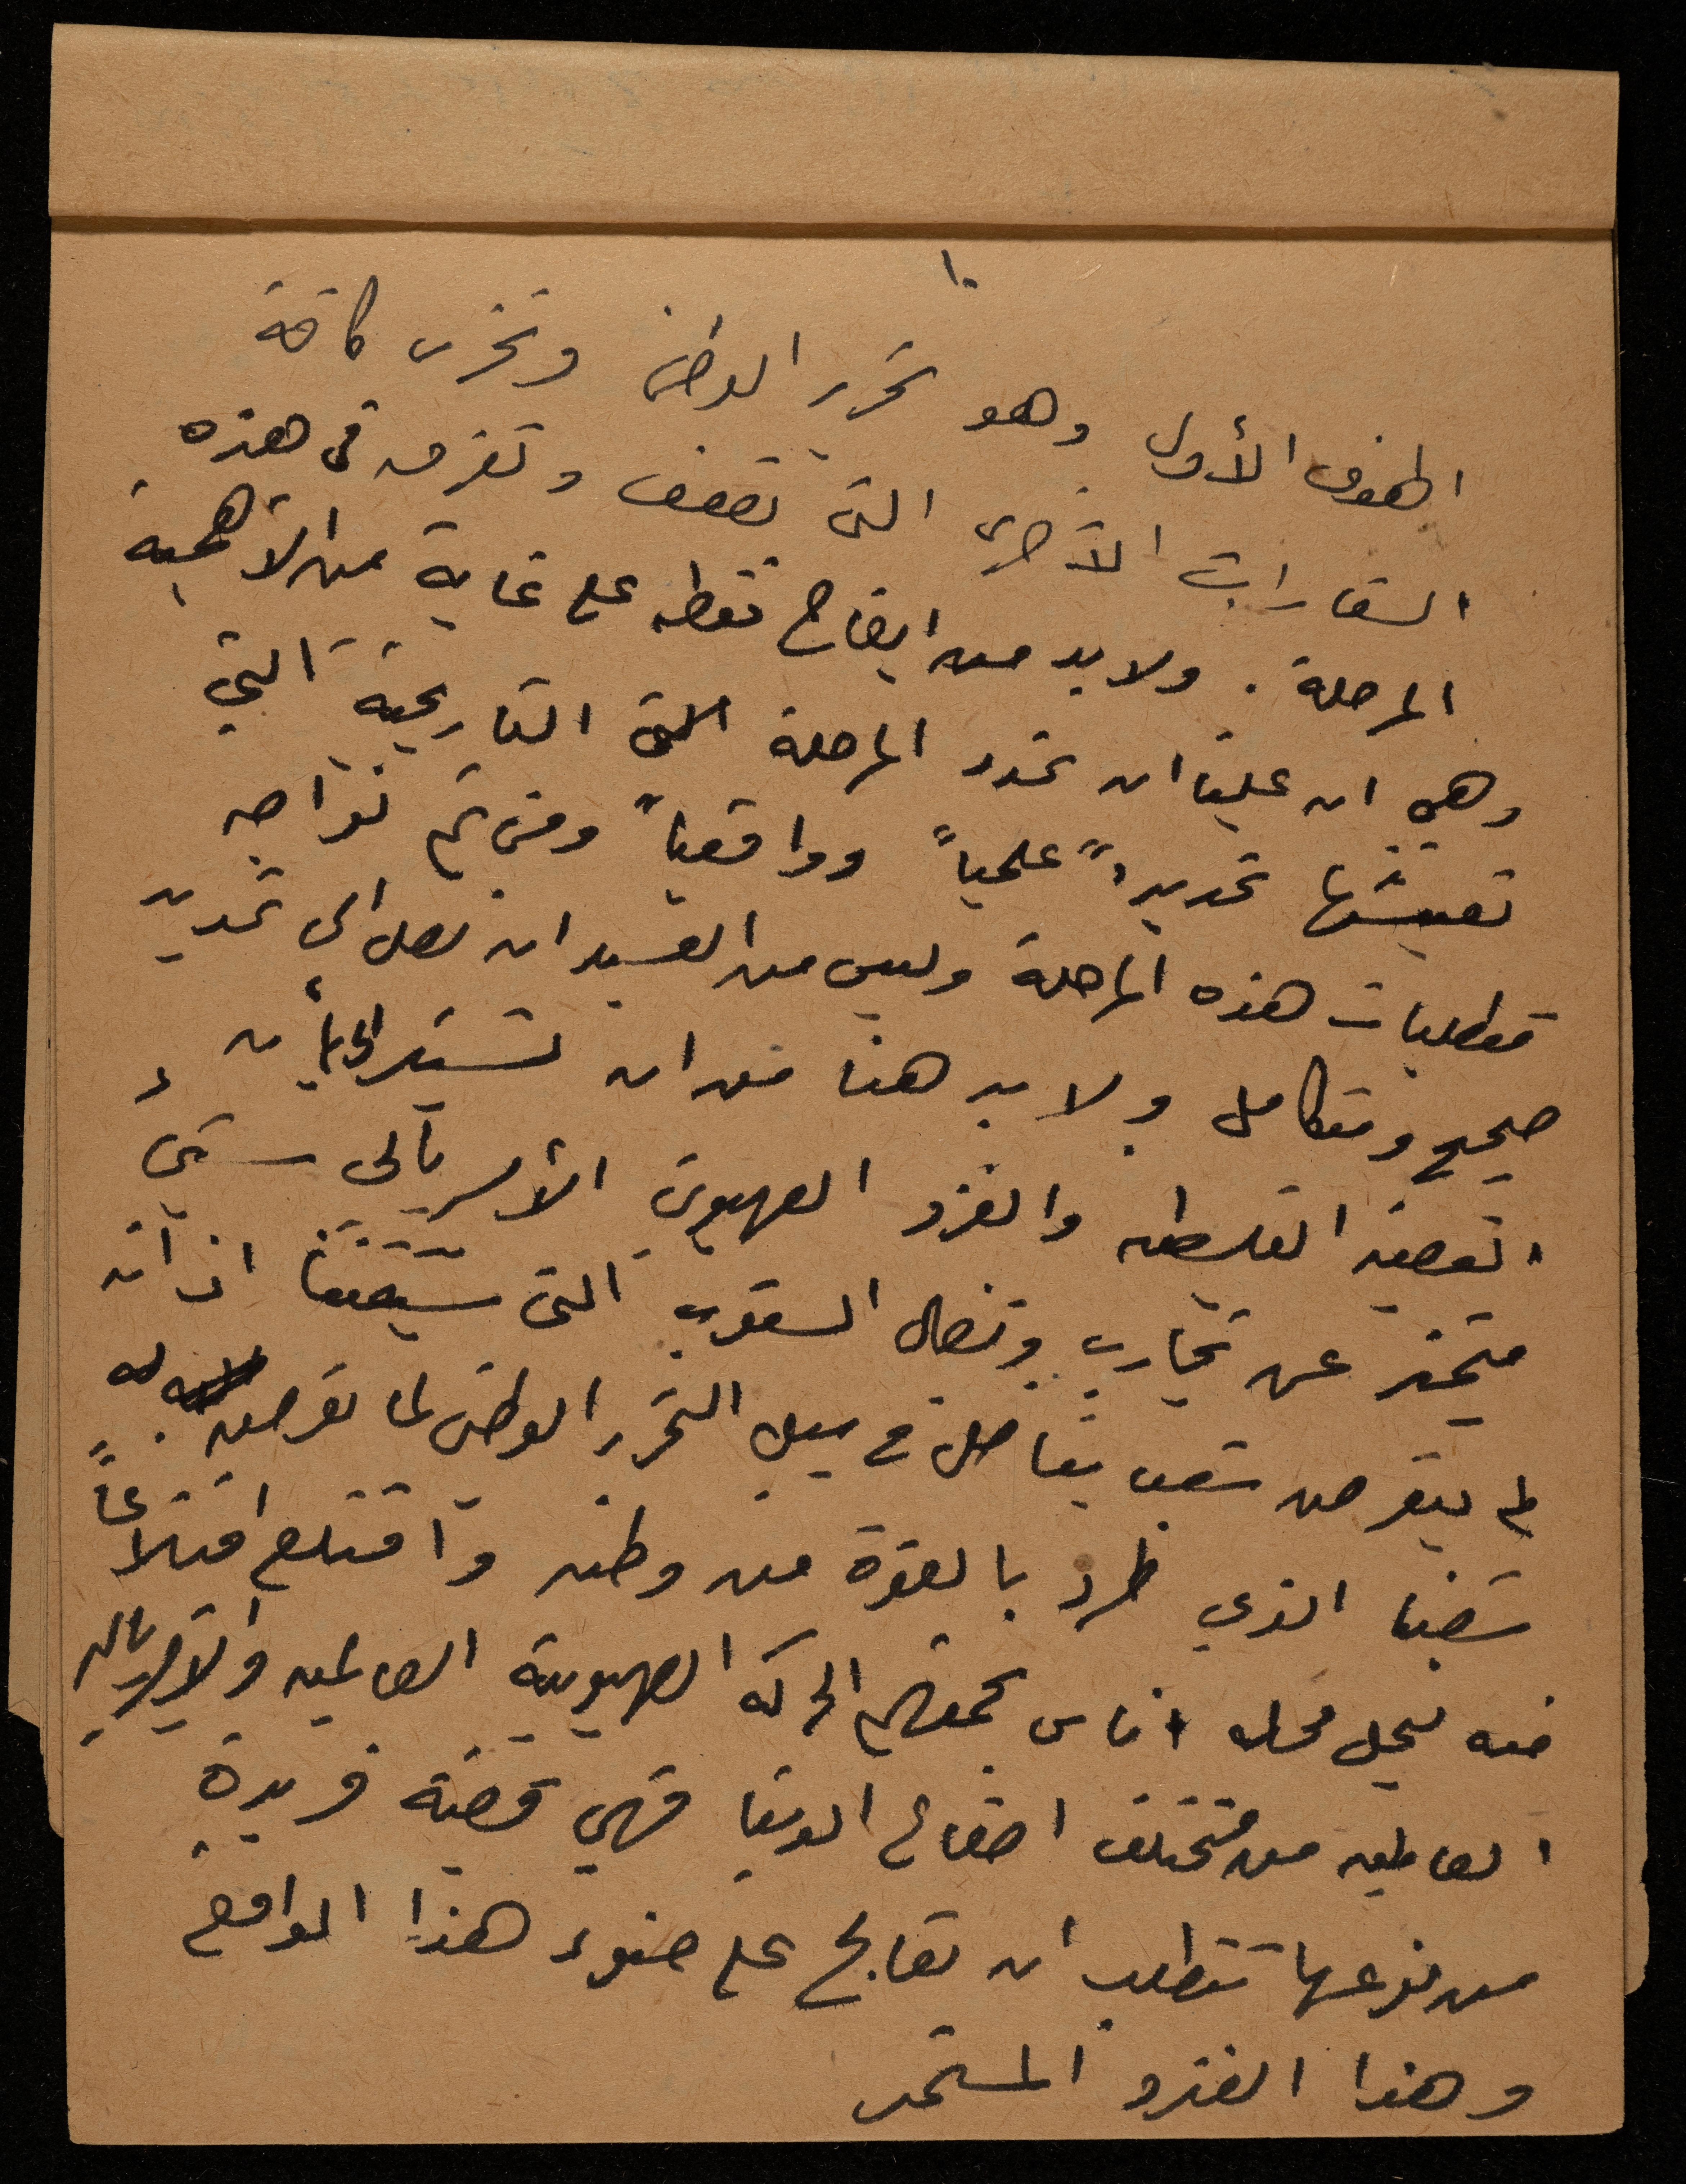 ١٠
الهدف الأول وهو تحرير الوطن ونحرر كافة
الشعارات الأخرى التي تضعف وتفرق في هذه
المرحلة . ولا بد من ايضاح نقطه على غاية من الأهمية
وهي ان علينا ان نحدد المرحلة التاريخية التي
نعيشها تحديداً علمياً وواقعياً ومن ثم نواجه
متطلبات هذه المرحلة وليس من العسير ان نصل الى تحديد
صحيح ومتكامل ولا بد هنا من ان نشير الى أن
القضية الفلسطينيه والغزو الصهيوني الأمبريالي شيء
متميز عن تجارب ونضال الشعوب التي سبقتنا اذ انه
لم يتعرض شعب يناضل في سبيل التحرر الوطني لما تعرض له
شعبنا الذي طرد بالقوة من وطنه واقتلع اقتلاعاً
منه ليحل محله اناس تجمعهم الحركه الصهيونية العالميه والامبرياليه
العالميه من مختلف اصقاع الدنيا فهي قضية فريدة
من نوعها تتطلب ان تعالج على ضوء هذا الواقع
وهذا الغزو المستمر